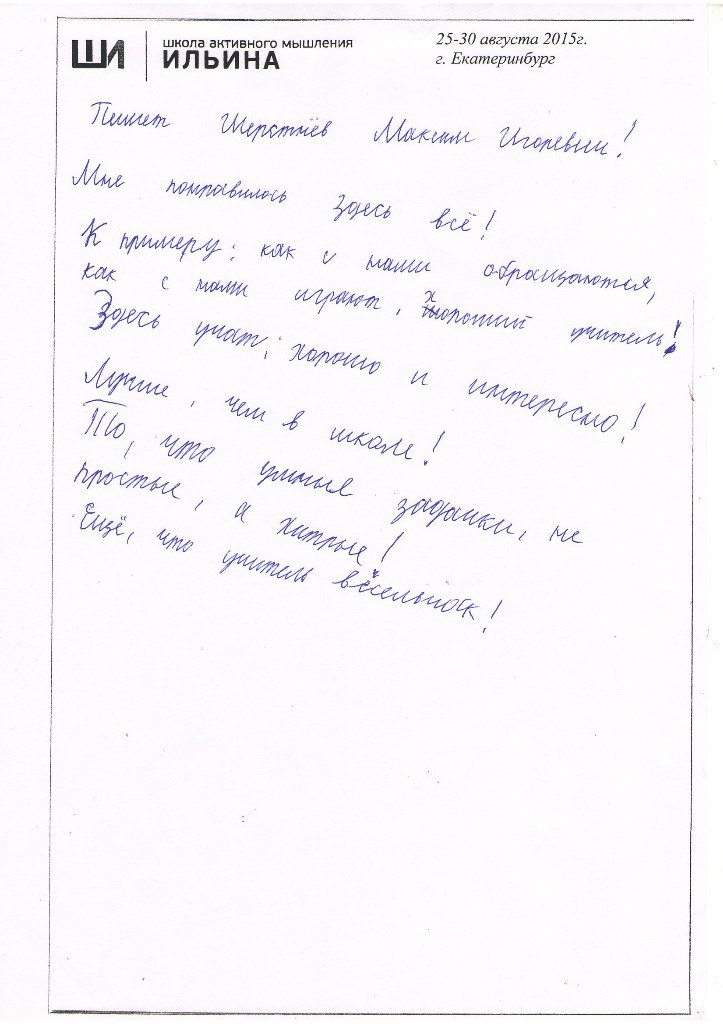 ШИ
школа активного мышления
ИЛЬИНА
25-30 августа 2015г.
г. Екатеринбург
Пишет Шерстнёв Максим Игоревич!
Мне понравилось здесь всё!
К примеру: как с нами обращаются,
как с нами играют, хороший учитель!
Здесь учат; хорошо и интересно!
Лучше, чем в школе!
То, что умные задачки, не
простые, а хитрые!
Ещё, что учитель весельчак!